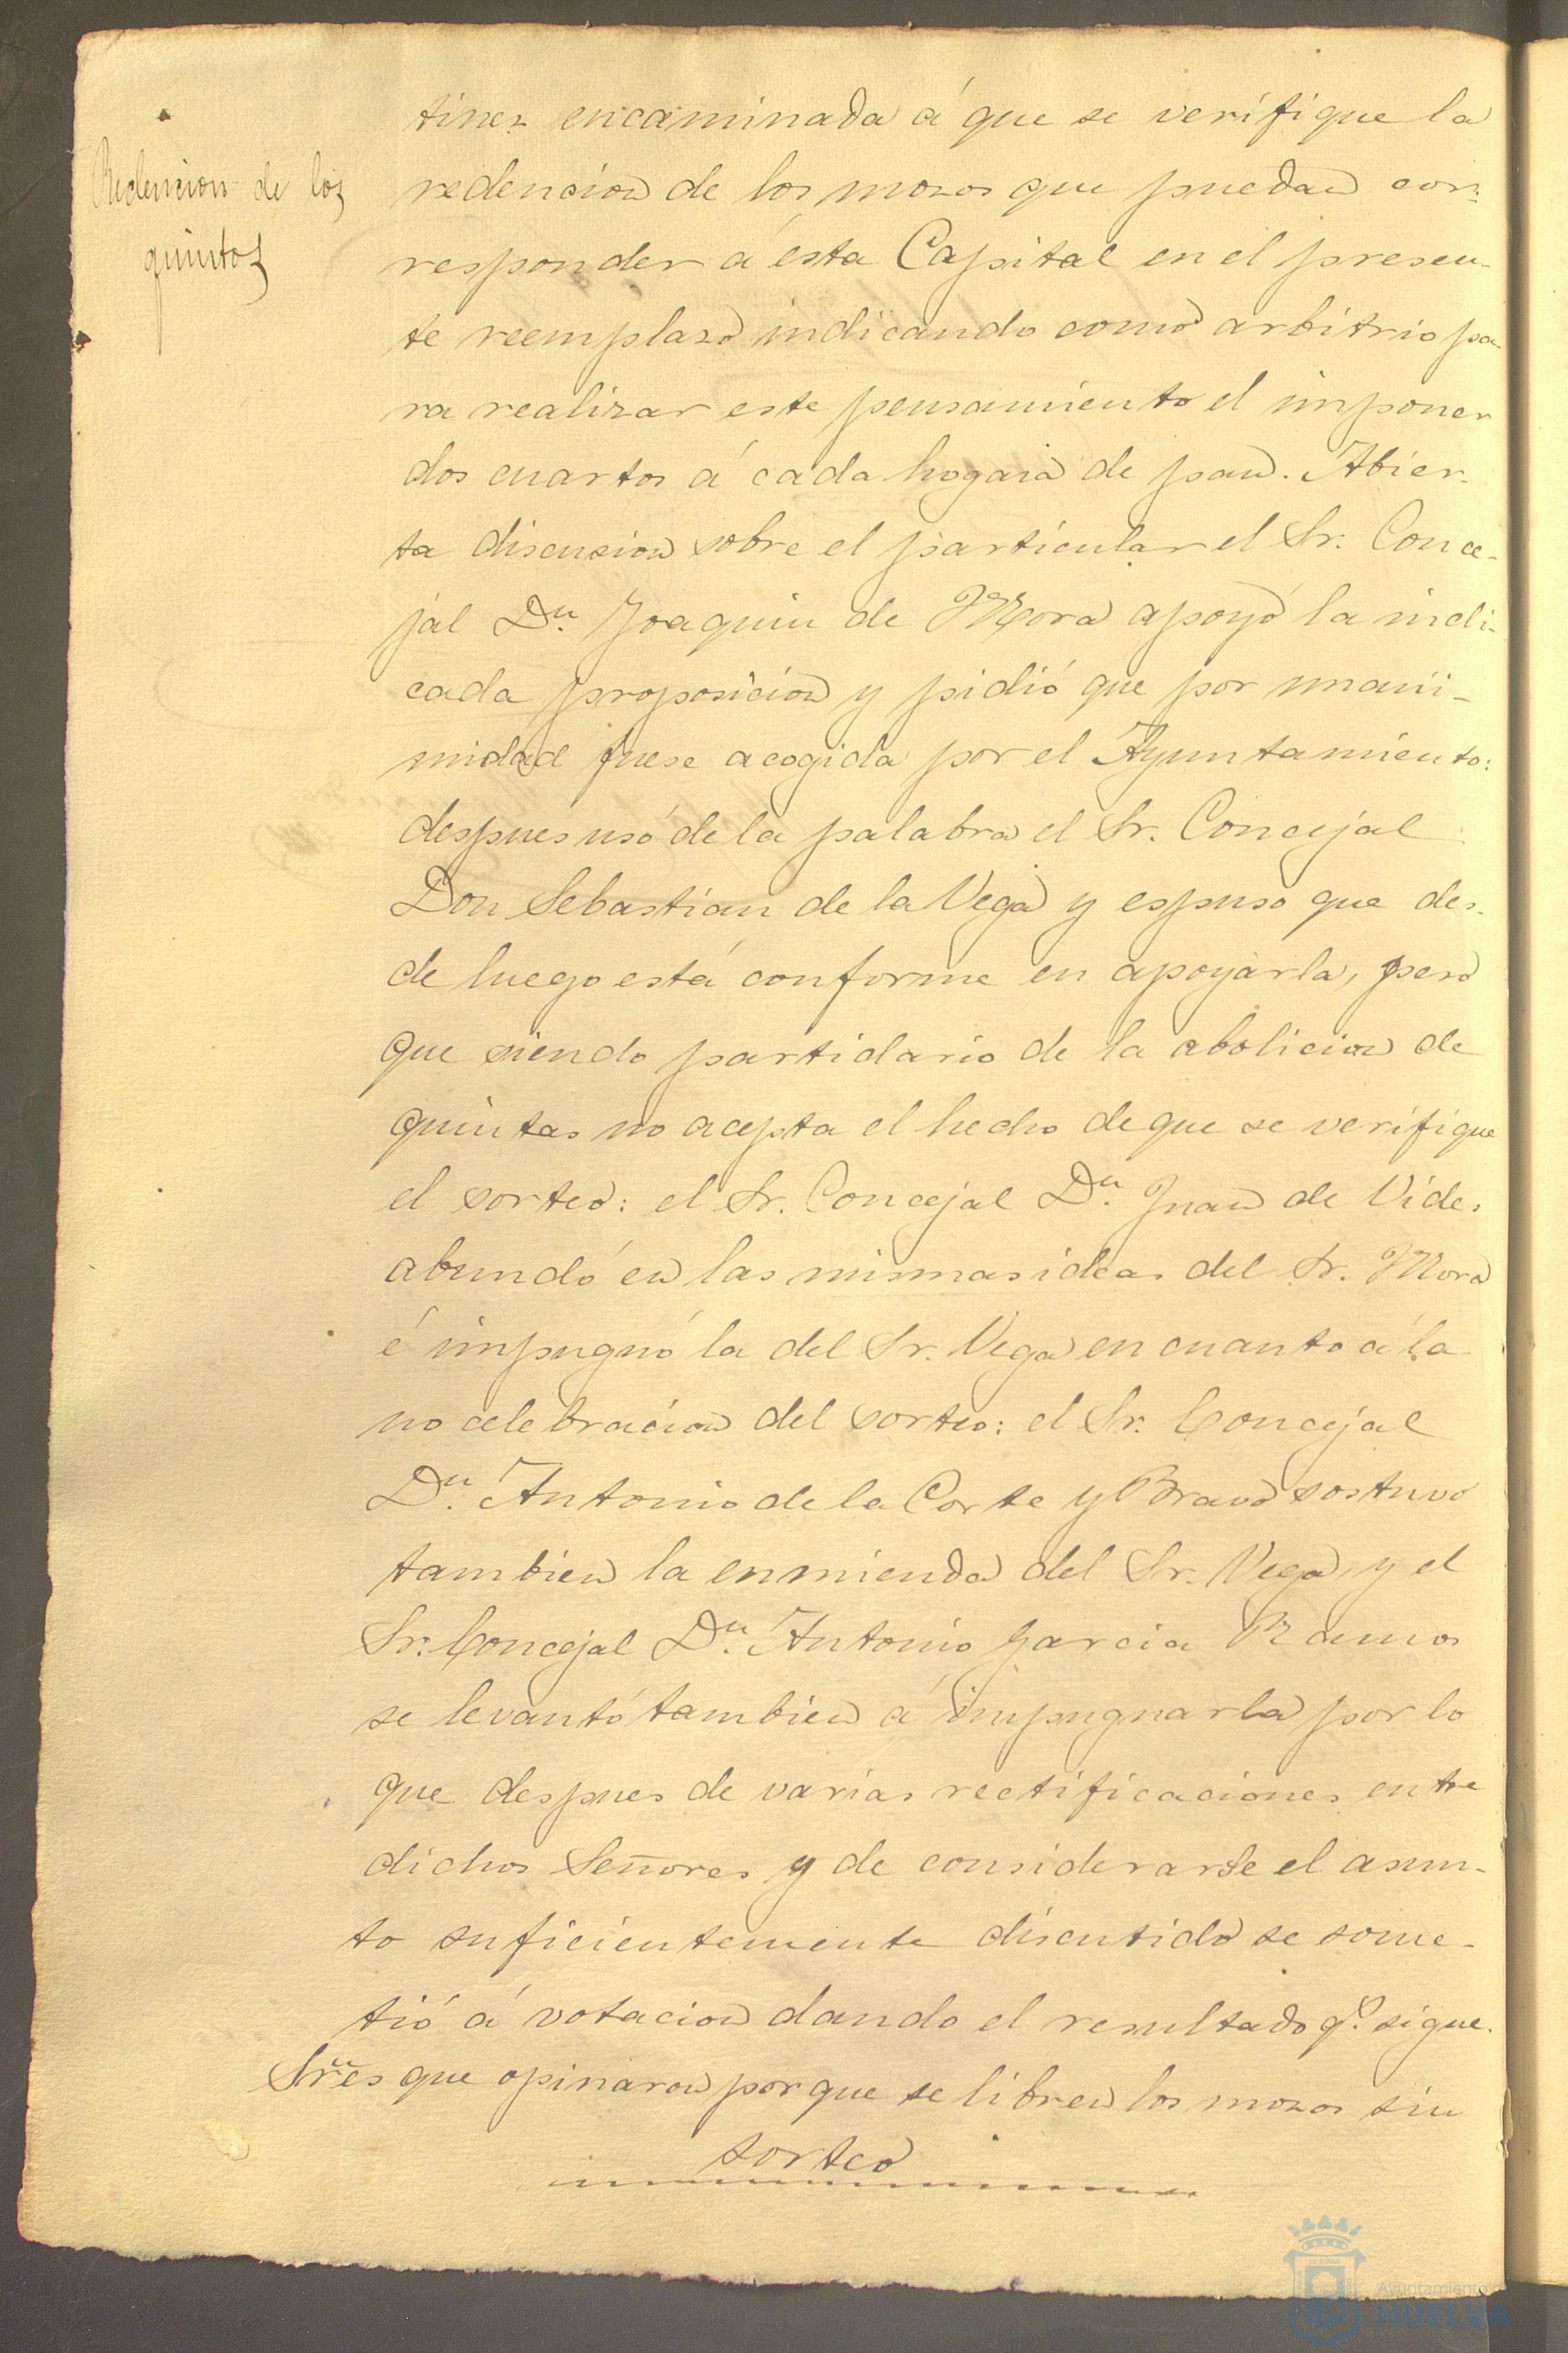 Redencion de los
quintos
tinez encaminada á que se verifique la
redencion de los mozos que puedan cor-
responder á ésta Capital en el presen-
te reemplazo indicando como arbitrio pa-
ra realizar este pensamiento el imponer
dos cuartos á cada hogaza de pan. Abier-
ta discusion sobre el particular el Sr. Conce-
jal Dn. Joaquin de Mora apoyó la indi-
cada proposicion y pidió que por unani-
midad fuese acogida por el Ayuntamiento:
despues usó de la palabra el Sr. Concejal
Don Sebastian de la Vega y espuso que des-
de luego está conforme en apoyarla, pero
que siendo partidario de la abolicion de
quintas no acepta el hecho de que se verifique
el sorteo: el Sr. Concejal Dn. Juan de Vides
abundó en las mismas ideas del Sr. Mora
é impugnó la del Sr. Vega en cuanto á la
no celebracion del sorteo: el Sr. Concejal
Dn. Antonio de la Corte y Bravo sostuvo
tambien la enmienda del Sr. Vega, y el
Sr. Concejal Dn. Antonio Garcia Ramos
se levantó tambien á impugnarla por lo
que despues de varias rectificaciones entre
dichos Señores y de considerarse el asun-
to suficientemente discutido se some-
tió á votacion dando el resultado qe. sigue.
Sres que opinaron por que se libren los mozos sin
sorteo
Ayuntamiento de
HUELVA